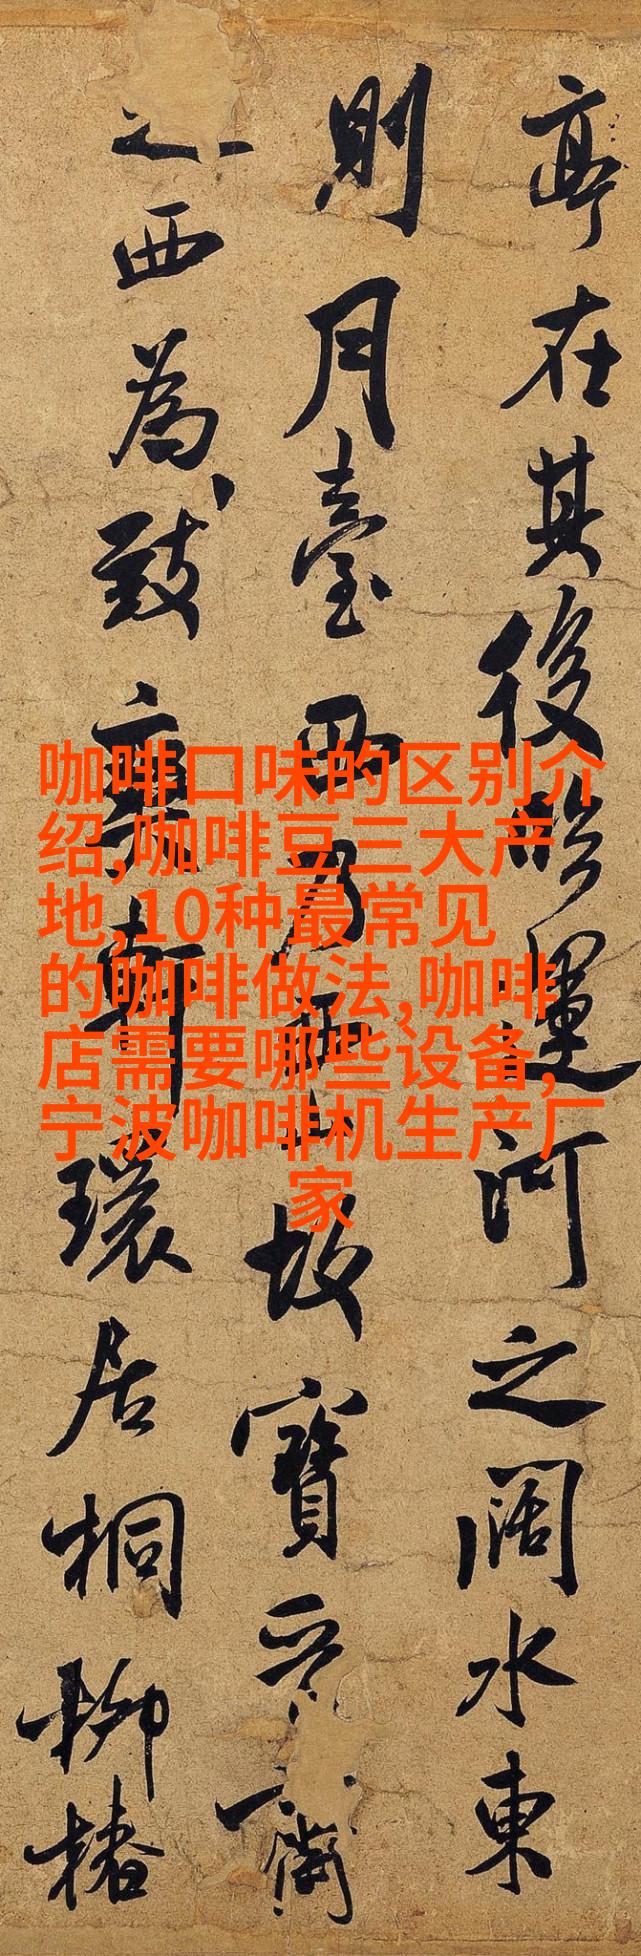 亭在其後吟運河之闊水東
則月臺西乃西山故寶晉齋
之西為致爽軒環居桐柳椿
咖啡口味的区别介
绍,咖啡豆三大产
地,10种最常见
的咖啡做法,咖啡
店需要哪些设备,
宁波咖啡机生产厂
家